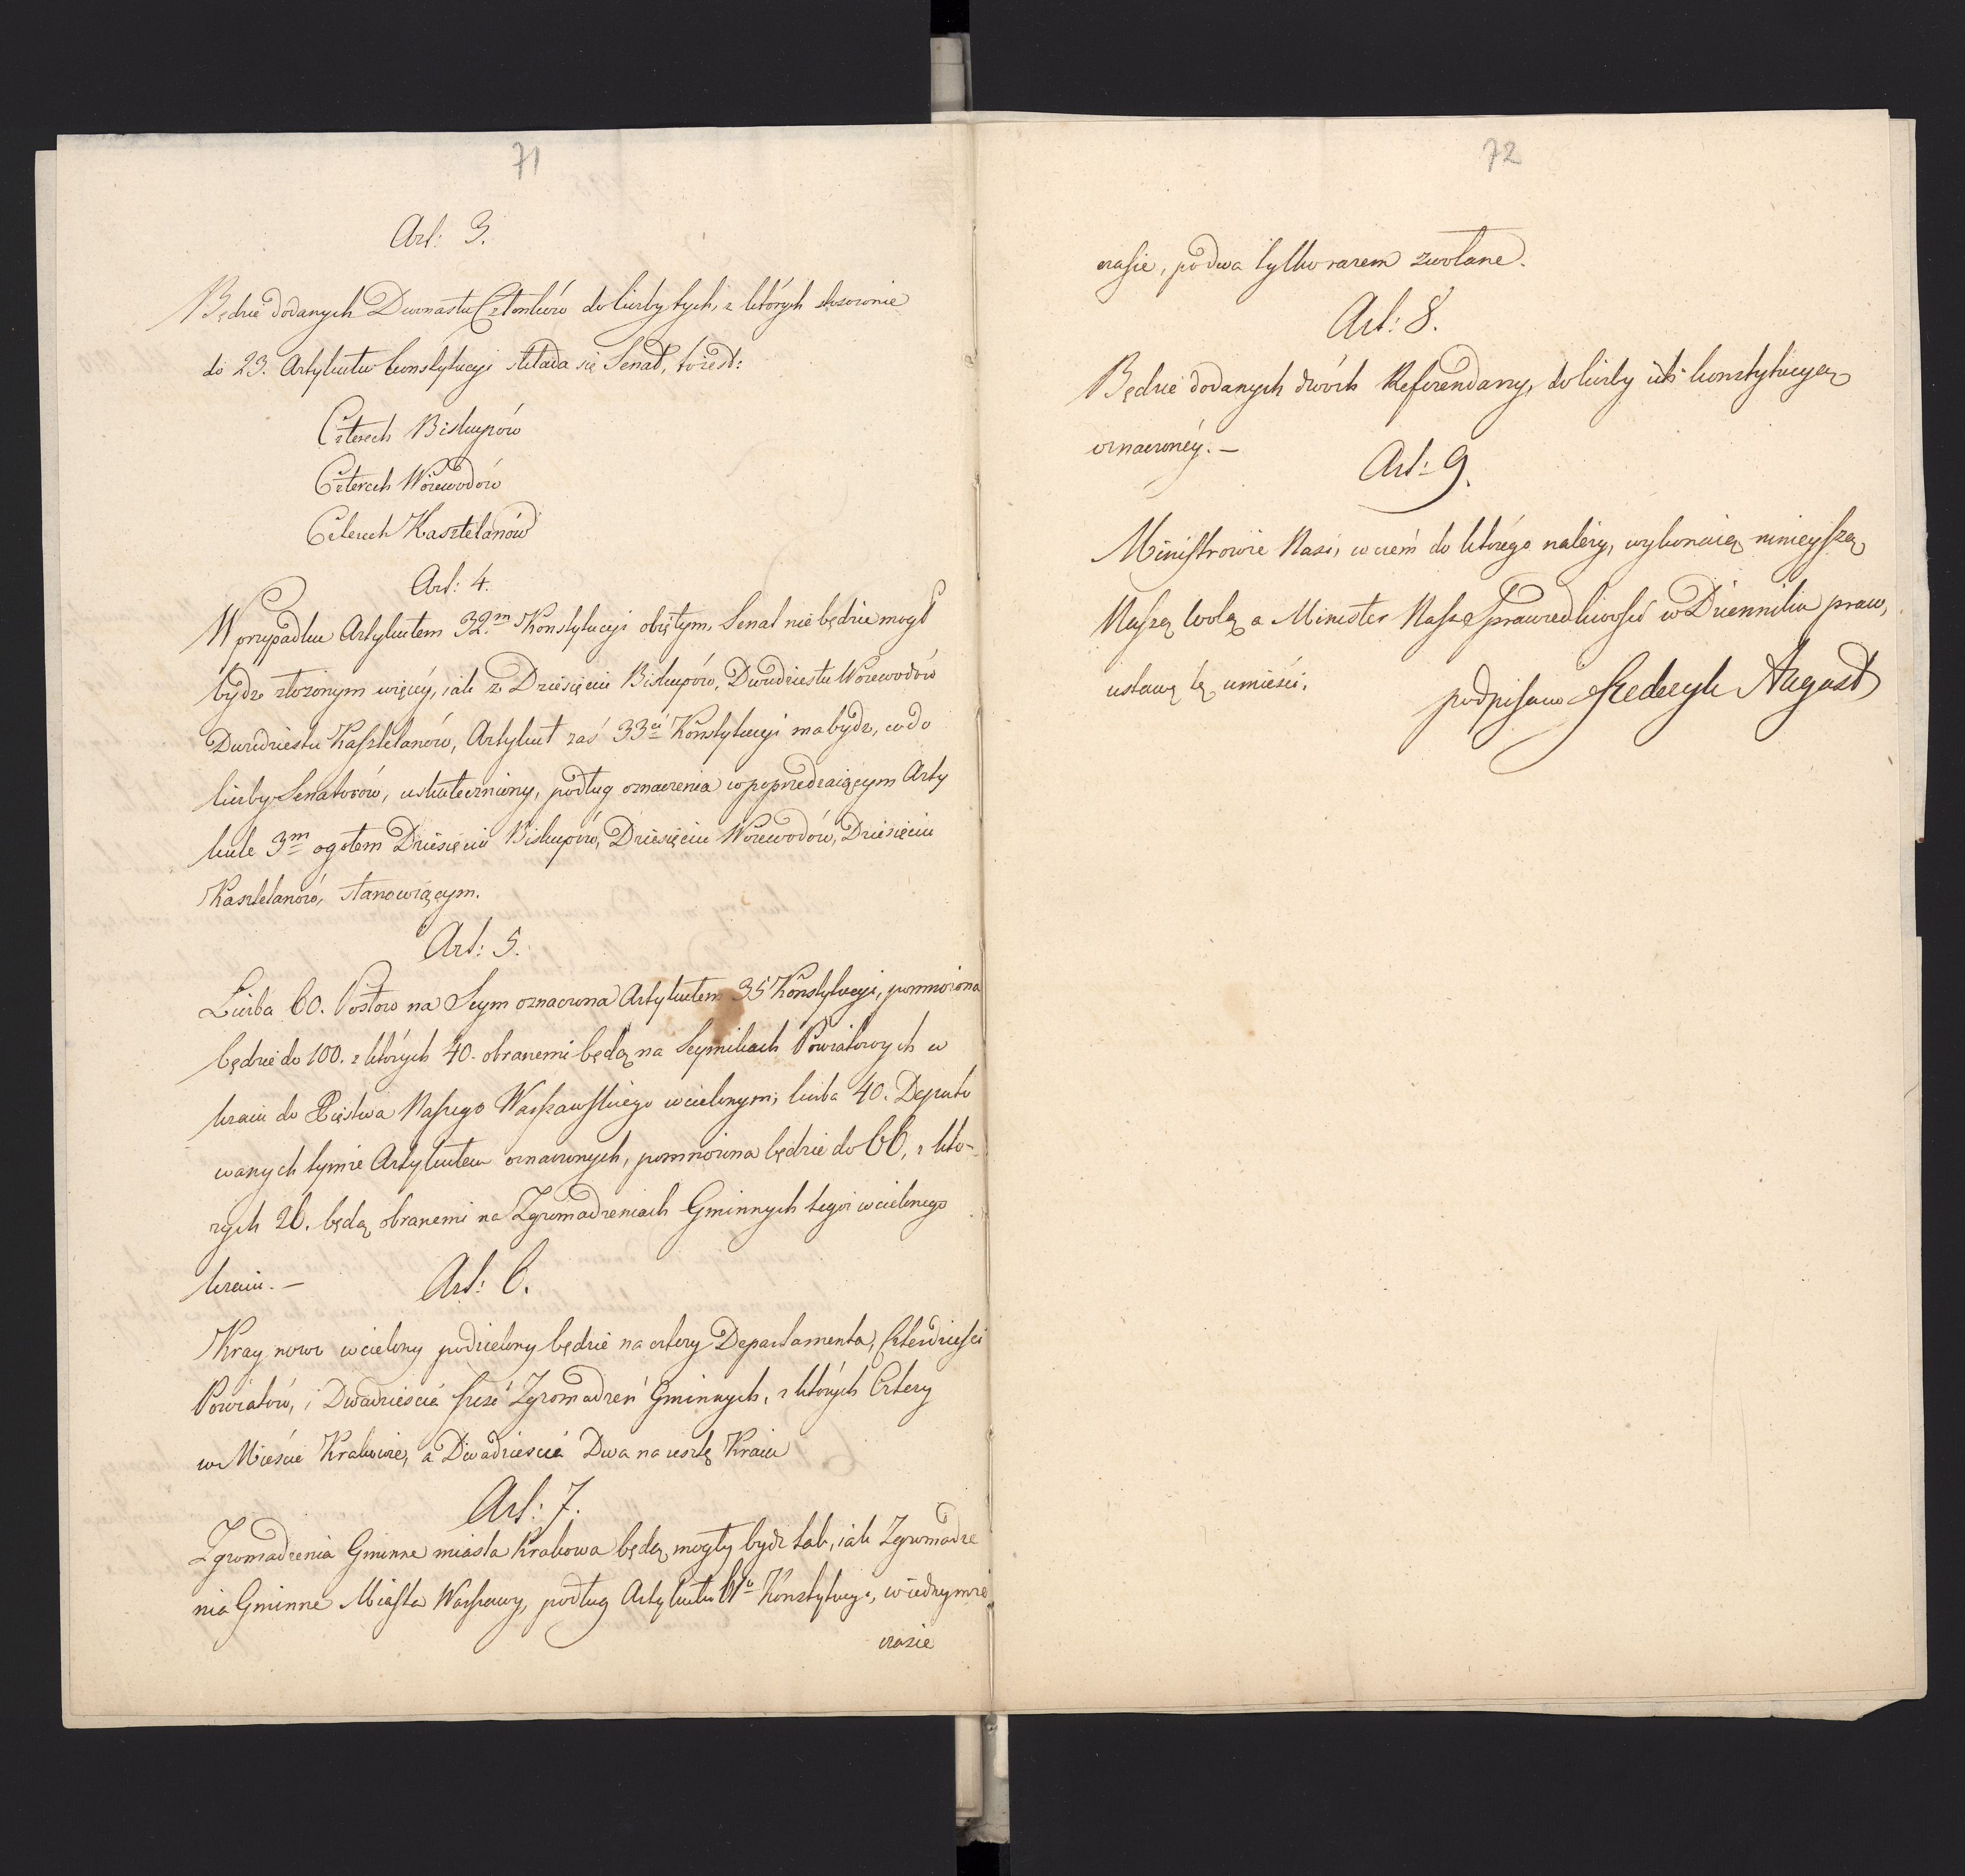 71
Art: 3.
Będzie dodanych Dwunastu Członków do liczby tych, z których stosownie
do 23. Artykułu konstytucyi składa się Senat, to iest:
Czterech Biskupów
Czterech Woiewodów
Czterech Kasztelanów
Art: 4.
W przypadku Artykułem 32.m Konstytucyi obiętym, Senat nie będzie mogł
bydz złożonym więcéy, iak z Dziesięciu Biskupów, Dwudziestu Woiewodów
Dwudziestu Kasztelanów, Artykuł zaś 33ci Konstytucyi ma bydz, co do
liczby Senatorów, uskuteczniony, podług oznaczenia w poprzedzaiącym Arty
kule 3m ogołem Dziesięciu Biskupów, Dziesięciu Woiewodów, Dziesięciu
Kasztelanów, stanowiącym.
Art: 5.
Liczba 60. Posłow na Seym oznaczona Artykułem 35 Konstytucyi, pomnożona
będzie do 100. z których 40. obranemi będą na Seymikach Powiatowych w
kraiu do Xięstwa Naszego Warszawskiego wcielonym; liczba 40. Deputo
wanych tymże Artykułem oznaczonych, pomnożona będzie do 66, z kto-
rych 26. będą obranemi na Zgromadzeniach Gminnych tegoż wcielonego
kraiu. —
Art: 6.
Kray nowo wcielony podzielony będzie na cztery Departamenta, Czterdzieści
Powiatów, i Dwadzieścia sześć Zgromadzeń Gminnych, z których Cztery
w Mieście Krakowie, a Dwadzieścia Dwa na resztę Kraiu
Art: 7.
Zgromadzenia Gminne miasta Krakowa będą mogły bydz tak, iak Zgromadze
nia Gminne Miasta Warszawy, podług Artykułu 61o Konstytucyi, w iednymże
czasie
72
czasie, po dwa tylko razem zwołane.
Art: 8.
Będzie dodanych dwóch Referendarzy, do liczby ich konstytucyą
oznaczonéy. —
Art: 9.
Ministrowie Nasi, w czém do którego należy, wykonaią ninieyszą
Naszą wolą a Minister Nasz Sprawiedliwości w Dzienniku praw,
ustawę tę umieści.
podpisano Frederyk August